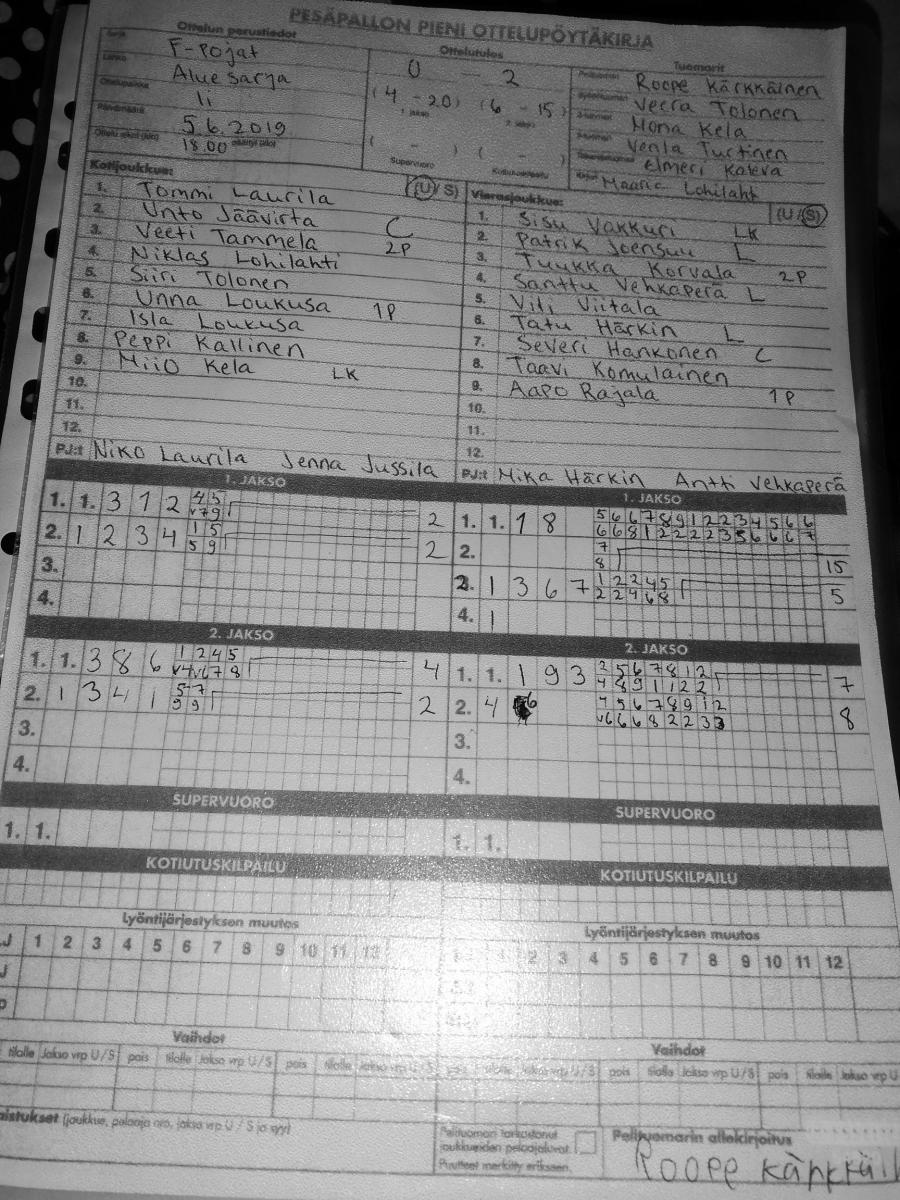 PESÄPALLON PIENI OTTELUPÖYTÄKIRJA
Ottelun perustiedot
Ottelutulos
Tuomarit
Sarja F-pojat
Lohko Aluesarja
Ottelupaikka Ii
Päivämäärä 5.6.2019
Ottelu alkoi (klo) 18.00 päättyi (klo)
0 - 2
(4 - 20) (6 - 15)
1. jakso 2. jakso
( - ) ( - )
Supervuoro Kotiutuskilpailu
Pelituomari Roope Kärkkäinen
Syöttötuomari Veera Tolonen
2-tuomari Mona Kela
3-tuomari Venla Turtinen
Takarajatuomari Elmeri Kateva
Kirjuri Maarie Lohilaht
Kotijoukkue: (U/S)
1. Tommi Laurila
2. Unto Jäävirta C
3. Veeti Tammela 2P
4. Niklas Lohilahti
5. Siiri Tolonen
6. Unna Loukusa 1P
7. Isla Loukusa
8. Peppi Kallinen
9. Miio Kela LK
10.
11.
12.
PJ:t Niko Laurila Jenna Jussila
Vierasjoukkue: (U/S)
1. Sisu Vakkuri LK
2. Patrik Joensuu L
3. Tuukka Korvala 2P
4. Santtu Vehkaperä L
5. Vili Viitala
6. Tatu Härkin L
7. Severi Hankonen C
8. Taavi Komulainen
9. Aapo Rajala 1P
10.
11.
12.
PJ:t Mika Härkin Antti Vehkaperä
1. JAKSO
1. 1. 3 1 2 4 5 2
v7 9
2. 1 2 3 4 1 5 2
5 9
3.
4.
1. JAKSO
1. 1. 1 8 5 6 6 7 8 9 1 2 2 3 4 5 6 6
6 6 8 1 2 2 2 2 3 5 6 6 6 7
2. 7
8 15
3. 1 3 6 7 1 2 2 4 5 5
2 2 4 6 8
4. 1
2. JAKSO
1. 1. 3 8 6 1 2 4 5 4
v4 v6 7 8
2. 1 3 4 1 5 7 2
9 9
3.
4.
2. JAKSO
1. 1. 1 9 3 2 5 6 7 8 1 2 7
4 8 9 1 1 2 2
2. 4 6 4 5 6 7 8 9 1 2 8
v6 6 6 8 2 2 3 3
3.
4.
SUPERVUORO
1. 1.
SUPERVUORO
1. 1.
KOTIUTUSKILPAILU
KOTIUTUSKILPAILU
Lyöntijärjestyksen muutos
J 1 2 3 4 5 6 7 8 9 10 11 12
Lyöntijärjestyksen muutos
2 3 4 5 6 7 8 9 10 11 12
Vaihdot
tilalle Jakso vrp U/S pois tilalle Jakso vrp U/S pois tilalle Jakso vrp U/S
Vaihdot
pois tilalle Jakso vrp U/S pois tilalle Jakso vrp U/S pois tilalle Jakso vrp U
aistukset (joukkue, pelaaja nro, jakso vrp U / S ja syy)
Pelituomari tarkastanut
joukkueiden pelaajaluvat.
Puutteet merkitty erikseen.
Pelituomarin allekirjoitus
Roope Kärkkäi